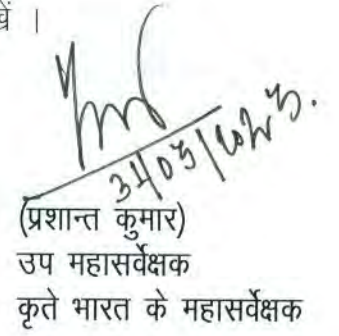 । 
31/03/2023.
(प्रशान्त कुमार)
उप महासर्वेक्षक
कृते भारत के महासर्वेक्षक